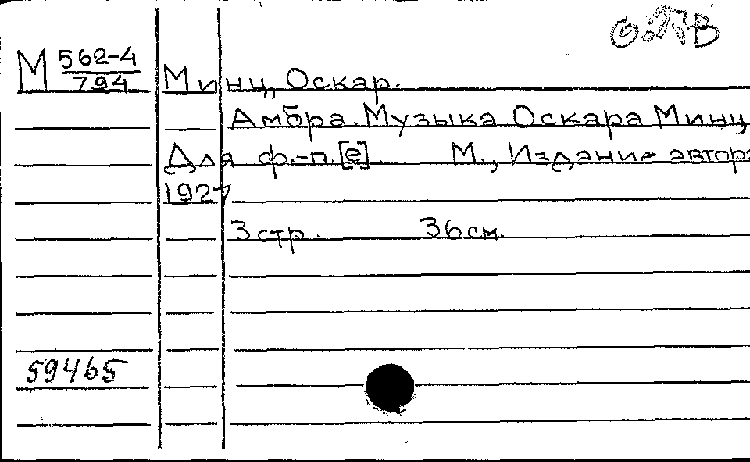 М 562-4
794
Минц, Оскар.
Амбра. Музыка Оскара Минц
Для ф.-п.[е] М., Издание автора
1927
3 стр. 36 см.
59465